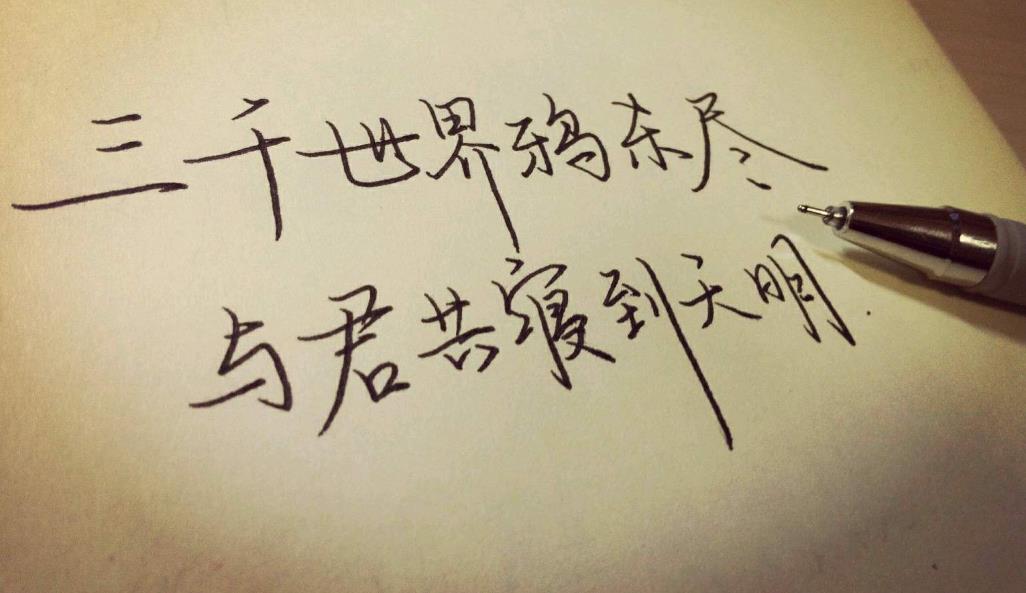 三千世界鸦杀尽
与君共寝到天明.